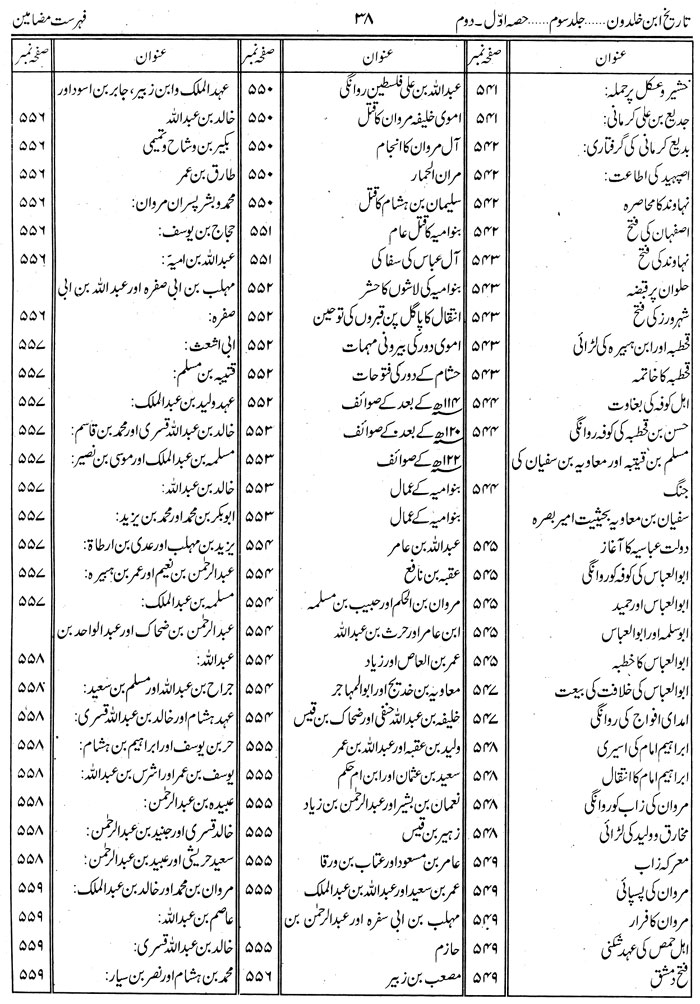 تاریخ ابن خلدون......جلد سوم......حصہ اوّل۔دوم
۳۸
فہرست مضامین
عنوان صفحہ نمبر
خشیر و عسکل پر حملہ: ۵۴۱
جدیع بن علی کرمانی: ۵۴۱
بدیع کرمانی کی گرفتاری: ۵۴۲
اصپہبد کی اطاعت: ۵۴۲
نہاوند کا محاصرہ ۵۴۲
اصفہان کی فتح ۵۴۲
نہاوند کی فتح ۵۴۳
حلوان پر قبضہ ۵۴۳
شہرورز کی فتح ۵۴۳
قحطبہ اور ابن ہبیرہ کی لڑائی ۵۴۳
قحطبہ کا خاتمہ ۵۴۳
اہل کوفہ کی بغاوت ۵۴۴
حسن بن قحطبہ کی کوفہ روانگی ۵۴۴
مسلم بن قتیبہ اور معاویہ بن سفیان کی
جنگ ۵۴۴
سفیان بن معاویہ بحیثیت امیر بصرہ
دولت عباسیہ کا آغاز ۵۴۵
ابوالعباس کی کوفہ کو روانگی ۵۴۵
ابوالعباس اور حمید ۵۴۵
ابوسلمہ اور ابوالعباس ۵۴۵
ابوالعباس کا خطبہ ۵۴۵
ابوالعباس کی خلافت کی بیعت ۵۴۷
امدای افواج کی روانگی ۵۴۷
ابراہیم امام کی اسیری ۵۴۸
ابراہیم امام کا انتقال ۵۴۸
مروان کی زاب کو روانگی ۵۴۸
مخارق و ولید کی لڑائی ۵۴۸
معرکہ زاب ۵۴۹
مروان کی پسپائی ۵۴۹
مروان کا فرار ۵۴۹
اہل حمص کی عہد شکنی ۵۴۹
فتح دمشق ۵۴۹
عنوان صفحہ نمبر
عبداللہ بن علی فلسطین روانگی ۵۵۰
اموی خلیفہ مروان کا قتل ۵۵۰
آل مروان کا انجام ۵۵۰
مران الحمار ۵۵۰
سلیمان بن ہشام کا قتل ۵۵۰
بنوامیہ کا قتل عام ۵۵۱
آل عباس کی سفاکی ۵۵۱
بنوامیہ کی لاشوں کا حشر ۵۵۲
انتقال کا پاگل پن قبروں کی توحین ۵۵۲
اموی دور کی بیرونی مہمات ۵۵۲
حشام کے دور کی فتوحات ۵۵۲
۱۱۴ھ کے بعد کے صوائف ۵۵۲
۱۲۰ھ کے بعد کے صوائف ۵۵۳
۱۲۲ھ کے صوائف ۵۵۳
بنوامیہ کے عمال ۵۵۳
بنوامیہ کے عمال ۵۵۳
عبداللہ بن عامر ۵۵۴
عقبہ بن نافع ۵۵۴
مروان بن الحکم اور حبیب بن مسلمہ ۵۵۴
ابن عامر اور حرث بن عبداللہ ۵۵۴
عمر بن العاص اور زیاد ۵۵۴
معاویہ بن خدیج اور ابوالمہاجر ۵۵۴
خلیفہ بن عبداللہ حنفی اور ضحاک بن قیس ۵۵۴
ولید بن عقبہ اور عبداللہ بن عمر ۵۵۵
سعید بن عثمان اور ابن ام حکم ۵۵۵
نعمان بن بشیر اور عبدالرحمٰن بن زیاد ۵۵۵
زہیر بن قیس ۵۵۵
عامر بن مسعود اور عتاب بن ورقا ۵۵۵
عمر بن سعید اور عبداللہ بن عبدالملک ۵۵۵
مہلب بن ابی سفرہ اور عبدالرحمٰن بن
حازم ۵۵۵
مصعب بن زبیر ۵۵۶
عنوان صفحہ نمبر
عہد الملک و ابن زبیر، جابر بن اسود اور
خالد بن عبداللہ ۵۵۶
بکیر بن وشاح و تمیمی ۵۵۶
طارق بن عمر ۵۵۶
محمد و بشر پسران مروان: ۵۵۶
حجاج بن یوسف: ۵۵۶
عبداللہ بن امیہ: ۵۵۶
مہلب بن ابی صفرہ اور عبداللہ بن ابی
صفرہ: ۵۵۶
ابی اشعث: ۵۵۷
قتیبہ بن مسلم: ۵۵۷
عہد ولید بن عبدالملک: ۵۵۷
خالد بن عبداللہ قسری اور محمد بن قاسم: ۵۵۷
مسلمہ بن عبدالملک اور موسیٰ بن نصیر: ۵۵۷
خالد بن عبداللہ: ۵۵۷
ابوبکر بن محمد اور محمد بن یزید: ۵۵۷
یزید بن مہلب اور عدی بن ارطاۃ: ۵۵۷
عبدالرحمٰن بن نعیم اور عمر بن ہبیرہ: ۵۵۷
مسلمہ بن عبدالملک: ۵۵۷
عبدالرحمٰن بن ضحاک اور عبدالواحد بن
عبداللہ: ۵۵۸
جراح بن عبداللہ اور مسلم بن سعید: ۵۵۸
عہد ہشام اور خالد بن عبداللہ قسری: ۵۵۸
حر بن یوسف اور ابراہیم بن ہشام: ۵۵۸
یوسف بن عمر اور اشرس بن عبداللہ: ۵۵۸
عبیدہ بن عبدالرحمٰن: ۵۵۸
خالد قسری اور جنید بن عبدالرحمٰن: ۵۵۸
سعید حریشی اور عبید بن عبدالرحمٰن: ۵۵۸
مروان بن محمد اور خالد بن عبدالملک: ۵۵۹
عاصم بن عبداللہ: ۵۵۹
خالد بن عبداللہ قسری: ۵۵۹
محمد بن ہشام اور نصر بن سیار: ۵۵۹